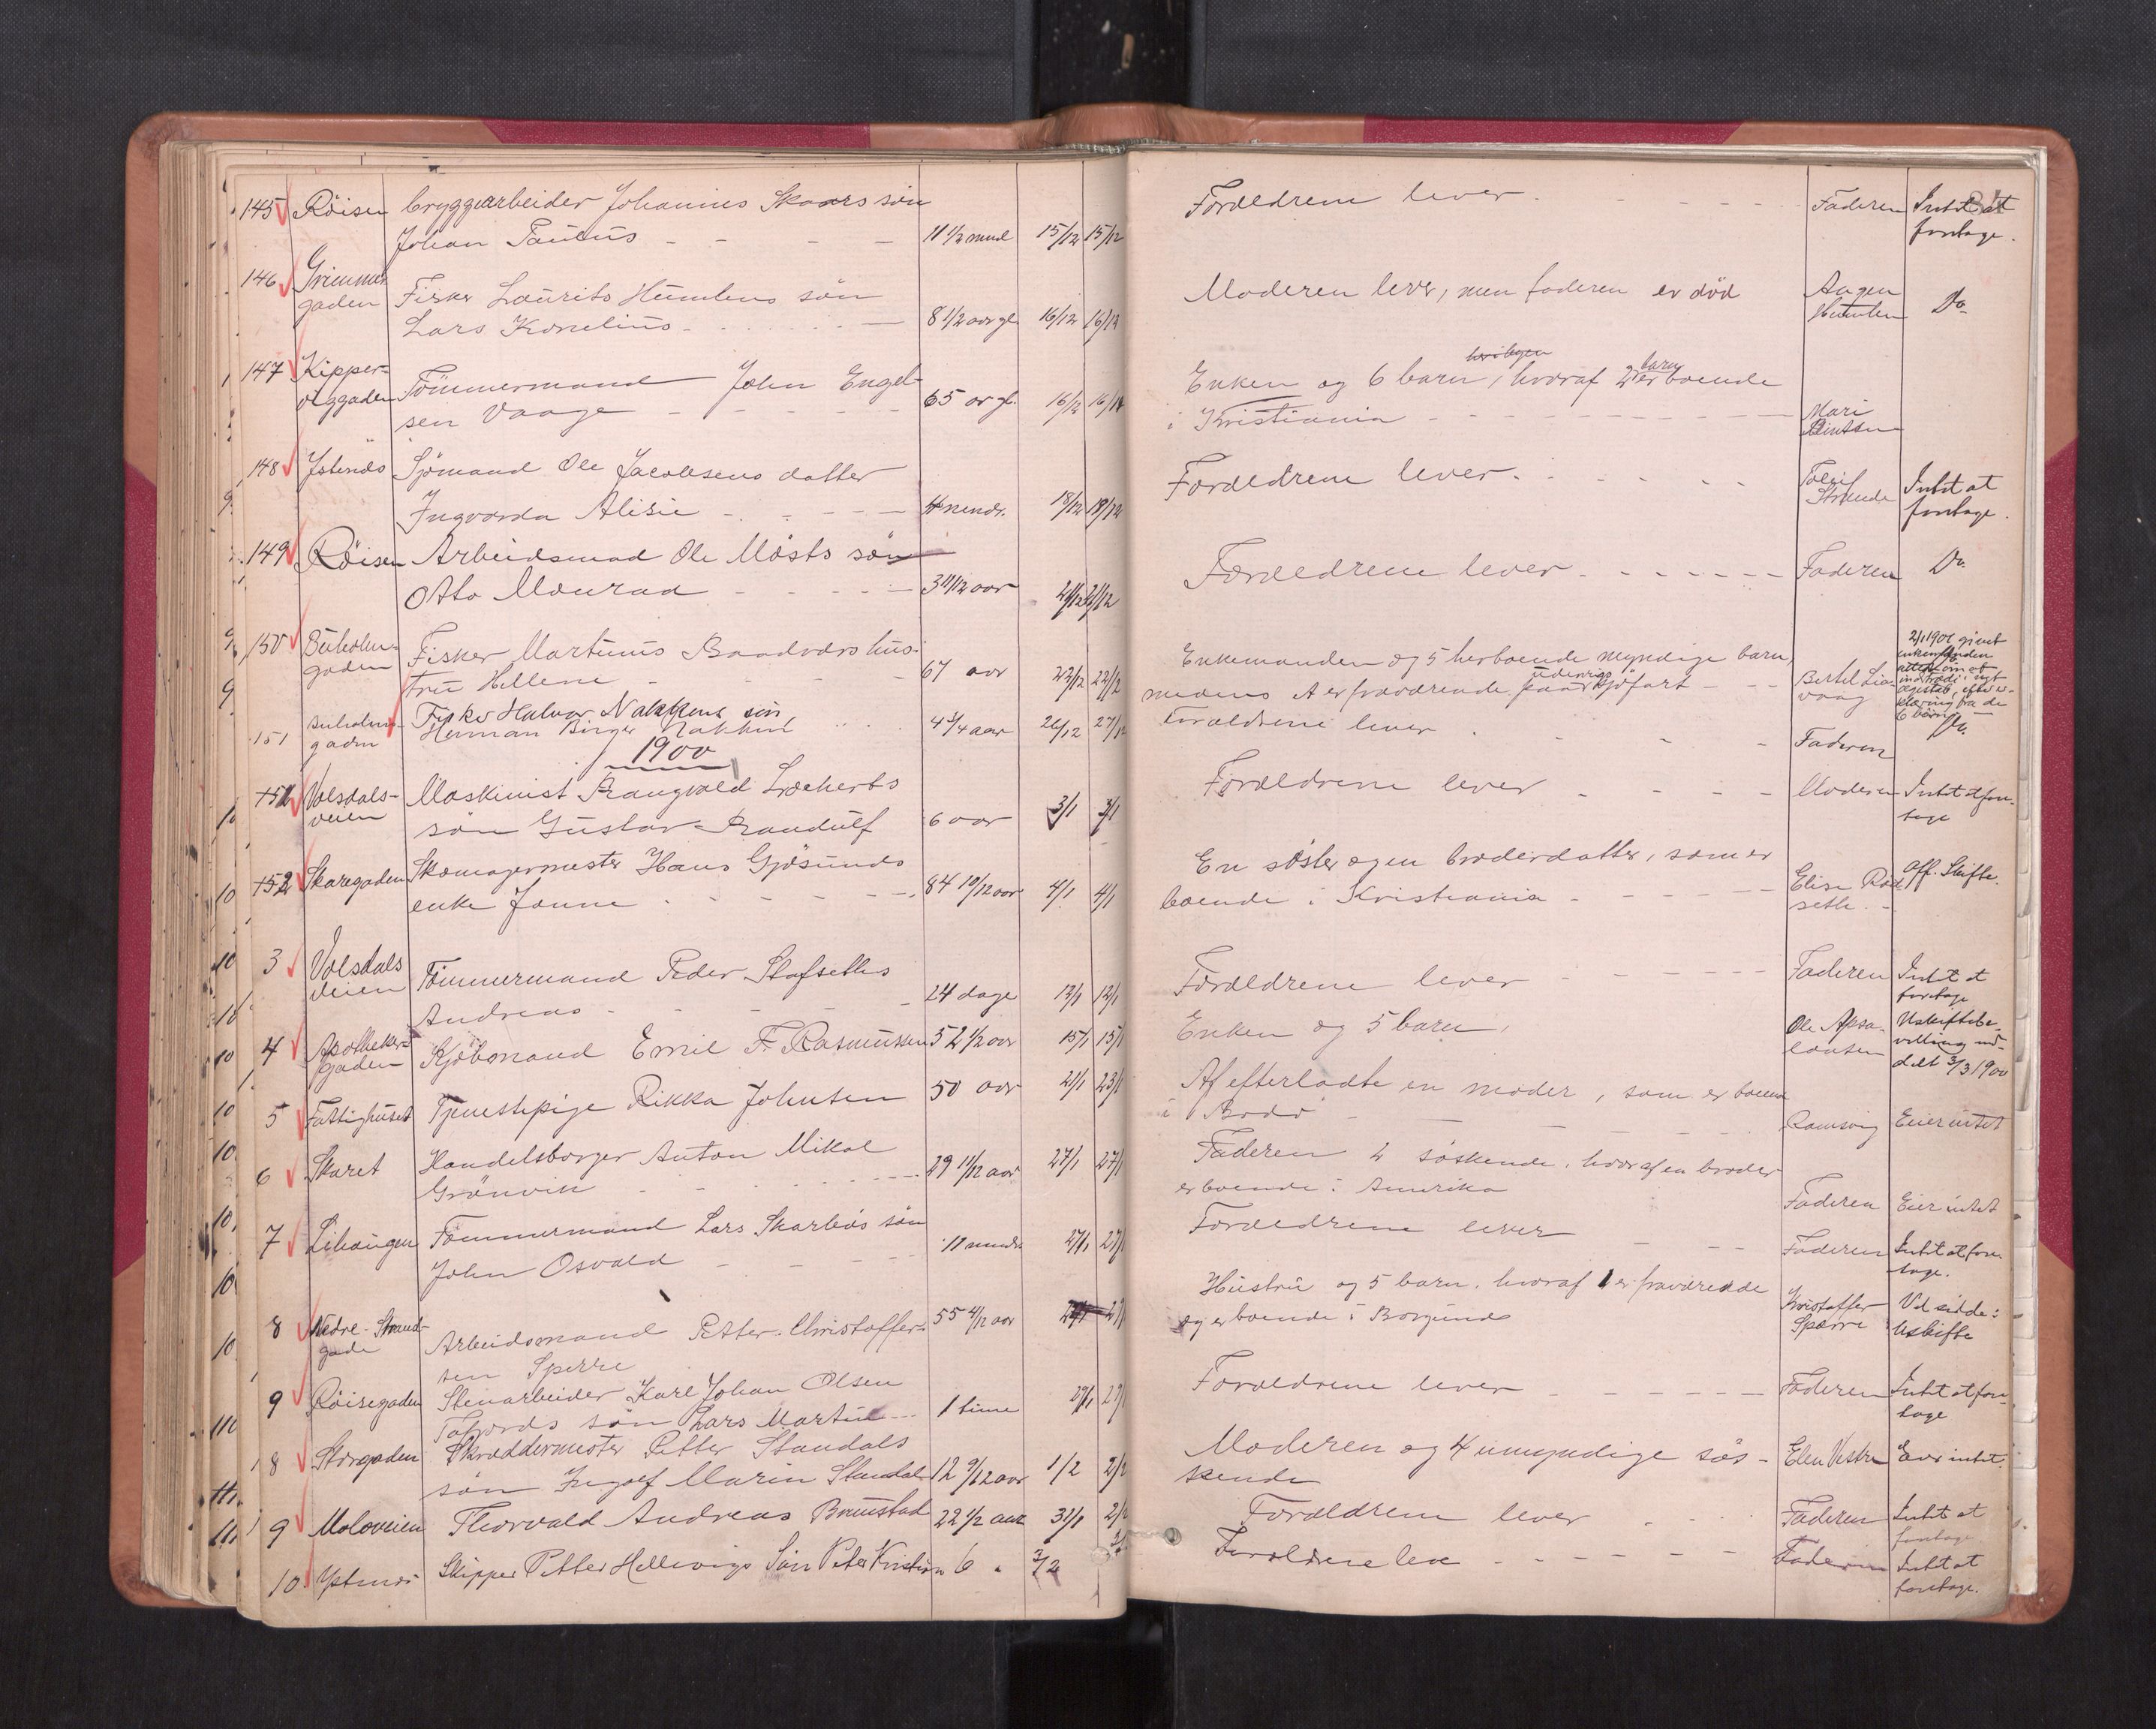 34
145 Röisen bryggearbeider Johannes Skaars søn
Johan Paulus - - - - 11 1/2 mnd 15/12 15/12
Forældrene lever. - - - - - Faderen Intet at
foretage.
146 Grimmer
gaden Fisker Laurits Humlens søn
Lars Kornelius - - - 8 1/2 aar gl. 16/12 16/12
Moderen lever, men faderen er död Aagen
Humlen Do
147 Kipper-
viggaden Tömmermand John Engel-
sen Vaage - - - - 65 år gl. 16/12 16/12
Enken og 6 barn, hvoraf 2 barn er boende
i Kristiania - - - - - Mari
148 Ystenös Sjömand Ole Jacobsens datter
Ingvarda Alisie - - - - 4 mndr. 18/12 18/12
Forældrene lever. - - - - - Strande Intet at
foretage.
149 Röisen Arbeidsmad Ole Mösts søn
Otto Monrad - - - - 3 11/12 aar 21/12 21/12
Forældrene lever - - - - - Faderen Do.
150 Buholm-
gaden Fisker Martinus Baadværs hus-
tru Hellene - - - - 67 aar 22/12 22/12
Enkemanden og 5 herboende myndige barn,
medens 1 er fraværende paa udenrigs sjöfart - - Bertel Lia-
vaag
2/1 1901 givet
enkemanden
attest om at
indtræde i nyt
ægteskab, efter er-
klæring fra de
6 börn
151 Buholms-
gaden Fisker Halvor Nakkens sön
Herman Birger Nakken 4 3/4 aar 26/12 27/12
Forældrene lever - - - Faderen Do.
1900
1 Volsdals-
veien Maskinist Raugvald Læherts
søn Gustav Randulf 6 aar 3/1 3/1
Forældrene lever - - - - Moderen Intet at fore-
tage
2 Skaregaden Skomagermester Hans Gjösunds
enke Janne - - - - 84 10/12 aar 4/1 4/1
En söster og en broderdatter, som er
boende i Kristiania - - - - Elise Rød
seth - Off. Skifte.
3 Volsdals
veien Tömmermand Peder Stafseths
Andreas - - - - 24 dage 12/1 12/1
Forældrene lever - - - - Faderen Intet at
foretage
4 Apotheker-
gaden Kjöbmand Emil F. Rasmussen 52 1/2 aar 15/1 15/1
Enken og 5 barn, Ole Aksa-
lonsen Uskiftebe-
villing ud-
delt 3/3 1900
5 Fattighuset Tjenestepige Rikka Johnsen 50 aar 21/1 23/1
Af efterladte en moder, som er boende
i Bodö - - - - Ramsvig Eier intet
6 Skaret Handelsborger Anton Mikal
Grönvik - - - - 29 11/12 aar 27/1 27/1
Faderen 2 söskende, hvoraf en broder
er boende i Amerika Faderen Eier intet
7 Lihaugen Tömmermand Lars Skarbös søn
John Osvald - - - 11 mndr. 27/1 27/1
Forældrene lever - - Faderen Intet at fore-
tage.
8 Nedre-Strand-
gade Arbeidsmand Petter Christoffer-
sen Sperre 55 4/12 aar
Hustru og 5 barn, hvoraf 1 er fraværende
og er boende i Borgund Kristoffer
Sperre Vil sidde i
Uskifte
9 Röisegaden Stenarbeider Karl Johan Olsen
Tafjords søn Lars Martin - - - 1 time 29/1 29/1
Forældrene lever - - - - Faderen Intet at fore-
tage
8 Storgaden Skræddermester Petter Standals
søn Ingolf Marin Standal 12 9/12 aar 1/2 2/2
Moderen og 4 umyndige sös-
kende Elen Vestre Eier intet.
9 Moloveien Thorvald Andreas Brunstad 22 1/2 aar 31/1 2/2
Forældrene lever - - - Faderen Intet at
foretage
10 Ystenös Skipper Petter Hellevigs Sön Peter Kristian 6 " 3/2
Forældrene leve - - - - - Faderen Intet at
foretage.